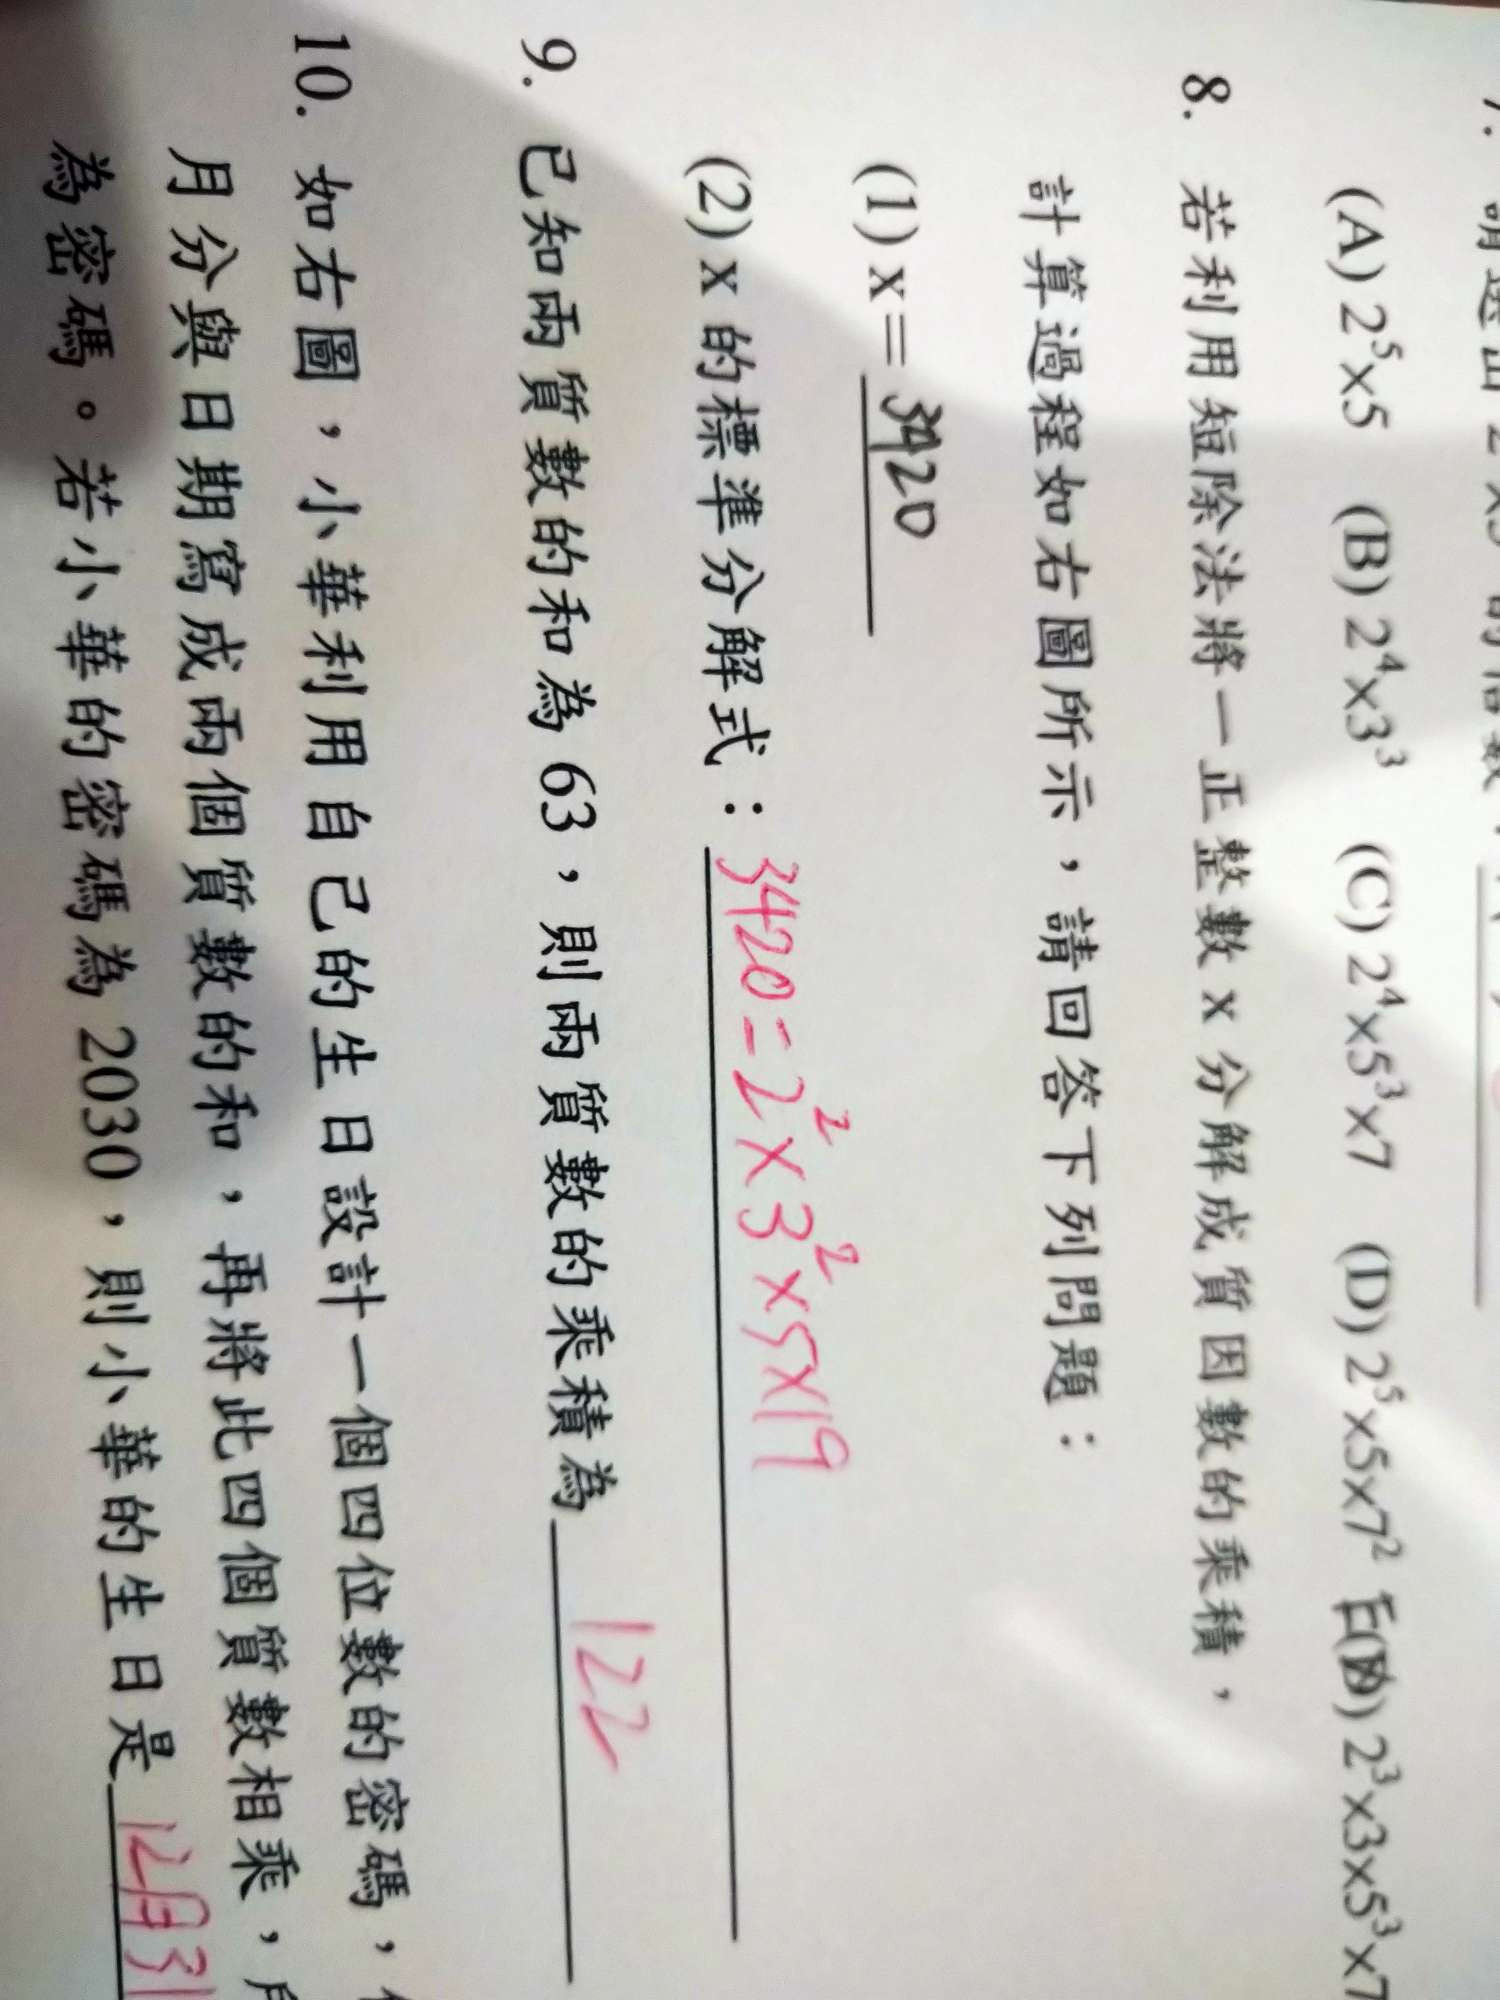 (A) 2⁵×5 (B) 2⁴×3³ (C) 2⁴×5³×7 (D) 2⁵×5×7² 2³×3×5³×7
8. 若利用短除法將一正整數 x 分解成質因數的乘積，
計算過程如右圖所示，請回答下列問題：
(1) x= 3420
(2) x 的標準分解式： 3420=2²×3²×5×19
9. 已知兩質數的和為 63，則兩質數的乘積為 122
10. 如右圖，小華利用自己的生日設計一個四位數的密碼，
月分與日期寫成兩個質數的和，再將此四個質數相乘，
為密碼。若小華的密碼為 2030，則小華的生日是 12月31